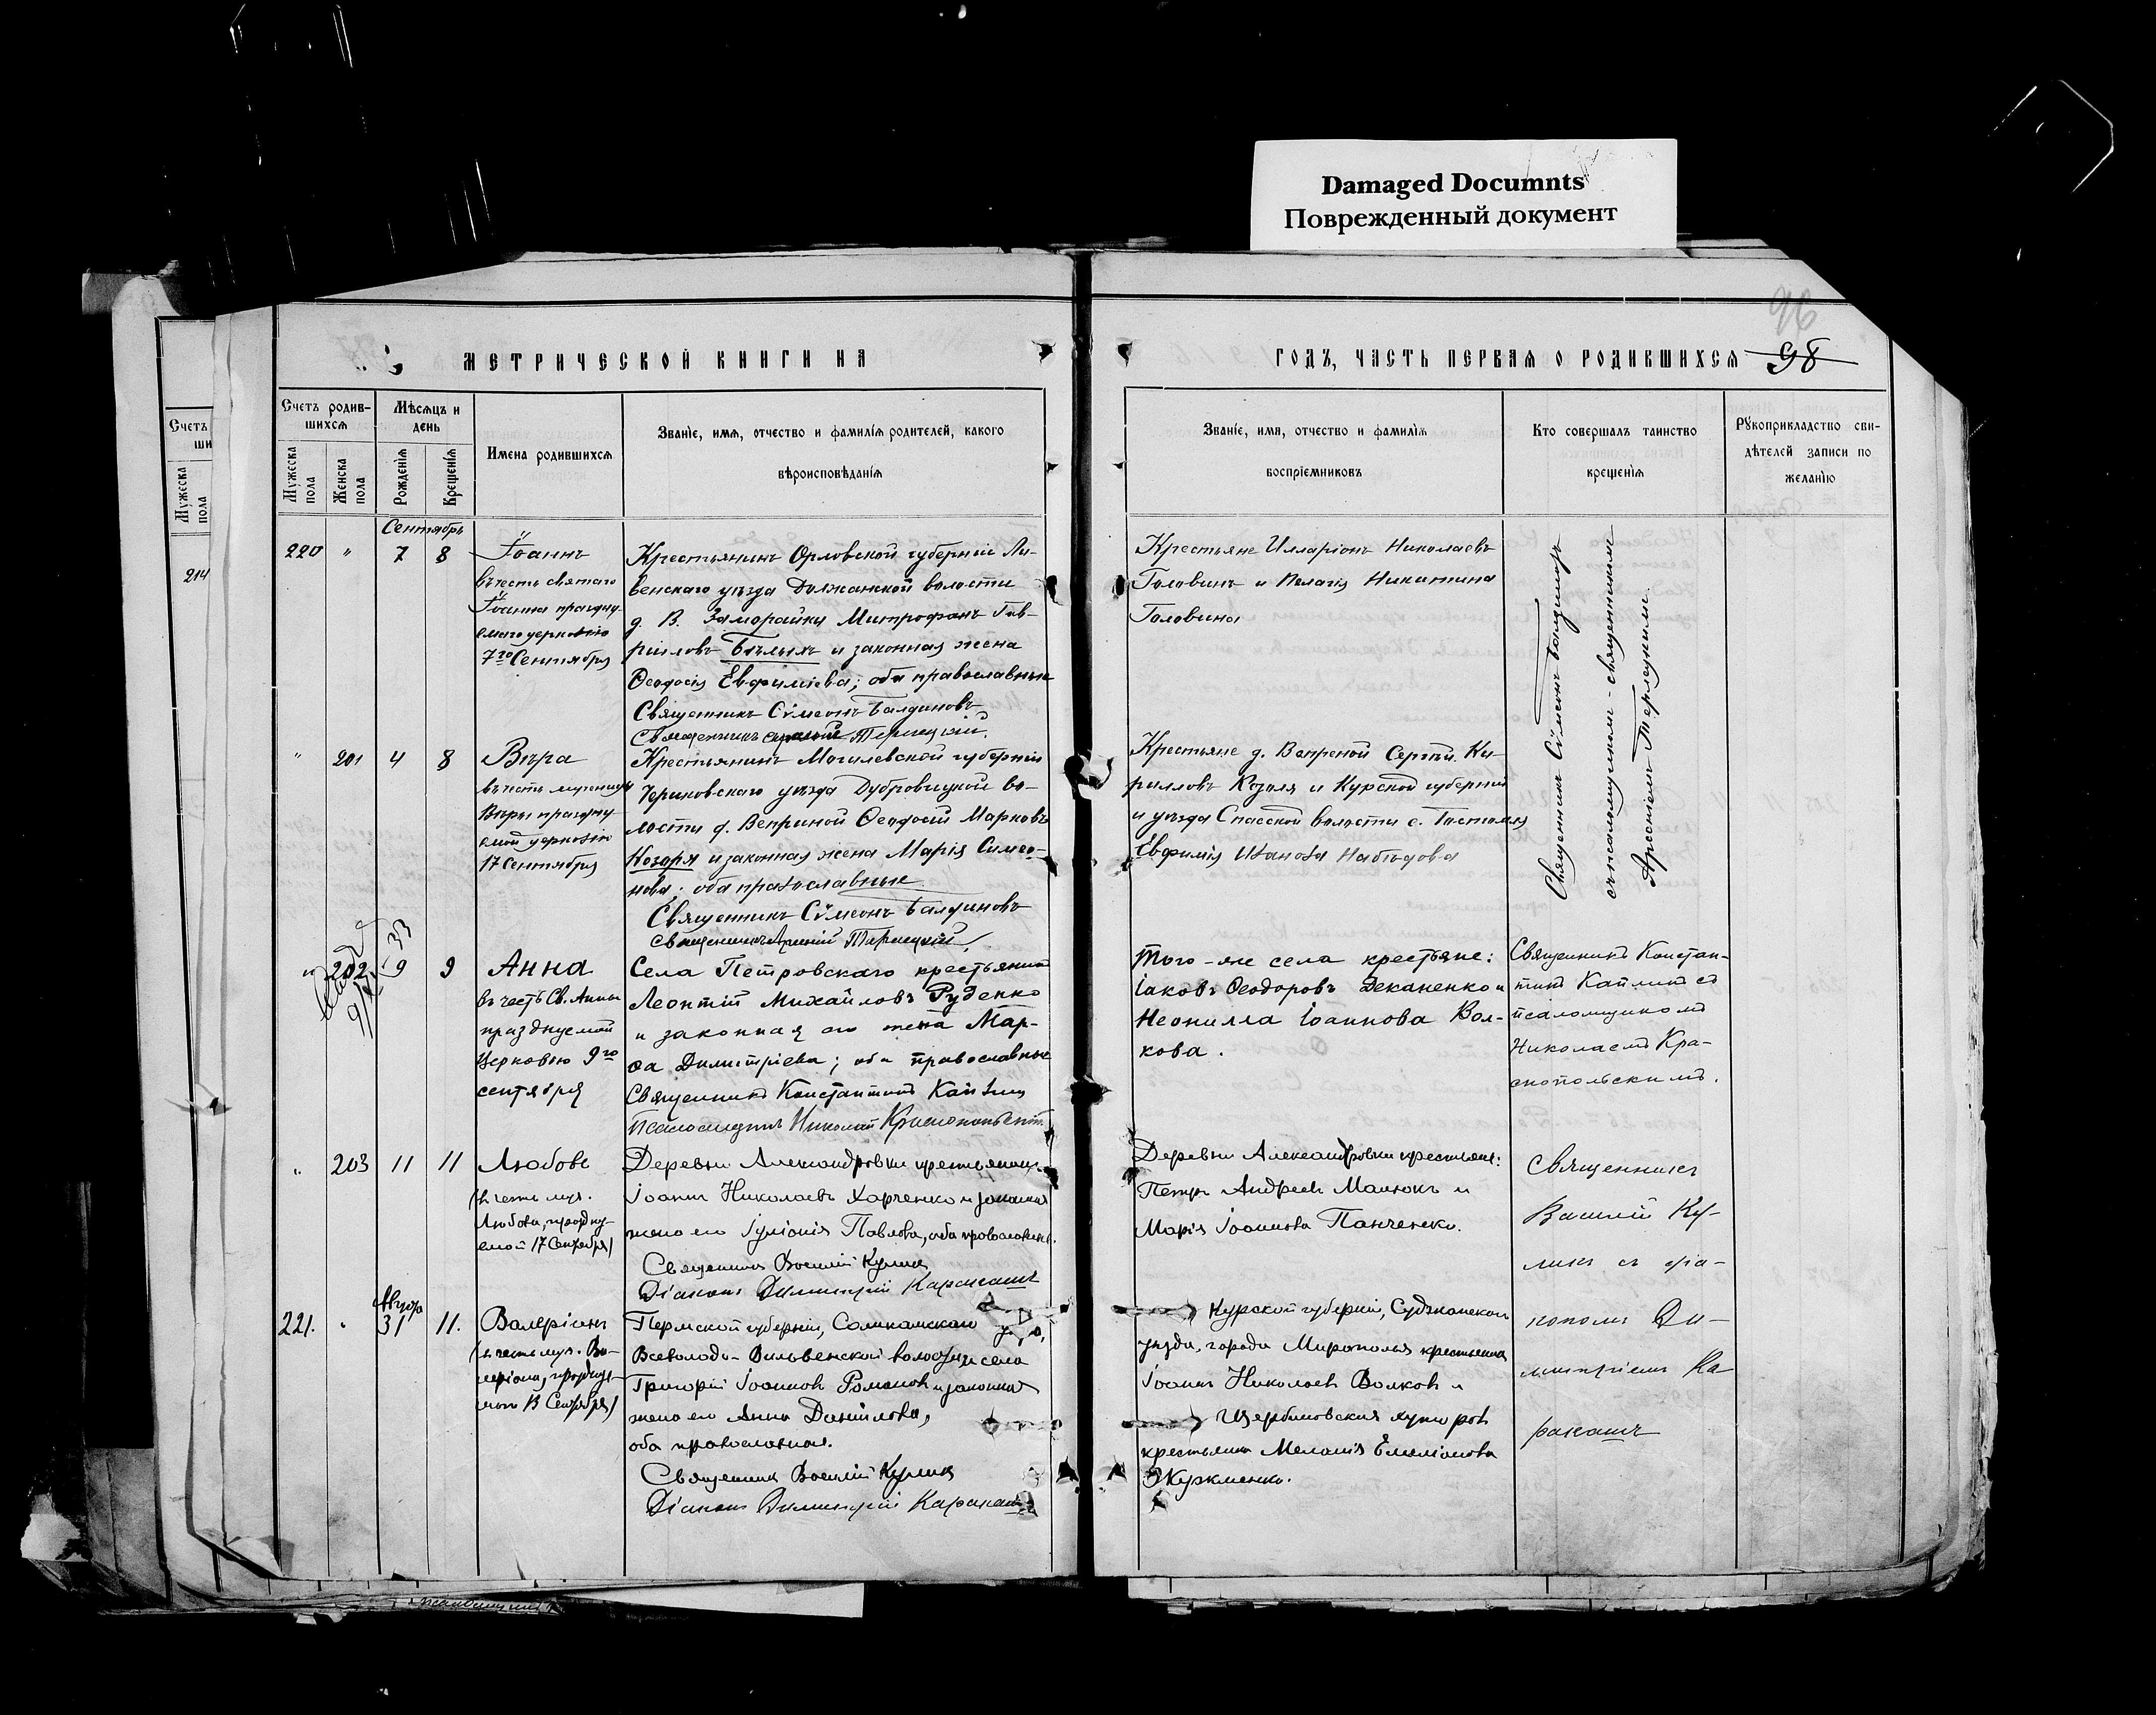 Damaged Documnts
Поврежденный документ
96
98
МЕТРИЧЕСКОЙ КНИГИ НА
ГОДЪ, ЧАСТЬ ПЕРВАЯ О РОДИВШИХСЯ
Счетъ
ши
Мужеска пола
214
Счетъ родив-
шихся
Мужеска пола
Женска пола
Мѣсяцъ и
день
Рожденія
Крещенія
Имена родившихся
Званіе, имя, отчество и фамилія родителей, какого
вѣроисповѣданія
Званіе, имя, отчество и фамилія
воспріемниковъ
Кто совершалъ таинство
крещенія
Рукоприкладство сви-
дѣтелей записи по
желанію
Сентябрь
220 " 7 8
Іоаннъ
въ честь святаго
Іоанна праздну-
емаго церковію
7го Сентября
Крестьянинъ Орловской губерніи Ли-
венскаго уѣзда Должанской волости
д. В. Заморайки Митрофанъ Гав-
риловъ Бѣлыхъ и законная жена
Ѳеодосія Евфиміева; оба православные
Священникъ Сѵмеонъ Балдиновъ
Священникъ
Крестьяне Илларіонъ Николаевъ
Головинъ и Пелагія Никитина
Головина
Священникъ Сѵмеонъ
съ псаломщикомъ-священникомъ
Арсеніемъ
" 201 4 8
Вѣра
въ честь мученицы
Вѣры праздну-
емой церковію
17 Сентября
Крестьянинъ Могилевской губерніи
Чериковскаго уѣзда Дубровицкой во-
лости д. Веприной Ѳеодосій Марковъ
Козоря и законная жена Марія Симео-
нова; оба православные
Священникъ Сѵмеонъ Балдиновъ
Священникъ Арсеній
Крестьяне д. Веприной Сергѣй Ки-
рилловъ Козоля и Курской губерніи
и уѣзда Спасской волости с.
Евфимія Иванова
" 202 9 9
Анна
въ честь Св. Анны
празднуемой
Церковью 9го
сентября
Села Петровскаго крестьянинъ
Леонтій Михайловъ Руденко
и законная его жена Мар-
ѳа Димитріева; оба православные
Священникъ Константинъ
Псаломщикъ Николай Краснопольскій
Того-же села крестьяне:
Іаковъ Ѳеодоровъ Деканенко и
Неонилла Іоаннова Вол-
кова.
Священникъ Констан-
тинъ съ
псаломщикомъ
Николаемъ Кра-
снопольскимъ.
" 203 11 11
Любовь
(въ честь муч.
Любови, праздну-
емой 17 Сентября)
Деревни Александровки крестьянинъ
Іоаннъ Николаевъ Харченко и законная
жена его Іуліанія Павлова, оба православные.
Священникъ Василій Куликъ
Діаконъ Димитрій Каракашъ
Деревни Александровки крестьяне:
Петръ Андреевъ Малюкъ и
Марія Іоаннова Панченко.
Священникъ
Василій Ку-
ликъ съ діа-
кономъ Ди-
митріемъ Ка
ракашъ
Августа
221. " 31 11.
Валеріанъ
(въ честь муч. Ва-
леріана, праздну-
емаго 13 Сентября)
Пермской губерніи, Соликамскаго
Всеволодо-Вильвенской волости и села
Григорій Іоанновъ Романовъ и законная
жена его Анна Даніилова,
оба православные.
Священникъ Василій Куликъ
Діаконъ Димитрій Каракашъ
Курской губерніи, Суджанскаго
уѣзда, города Мирополья крестьянинъ
Іоаннъ Николаевъ Волковъ и
Щербиновскихъ хуторовъ
крестьянка Меланія Емеліанова